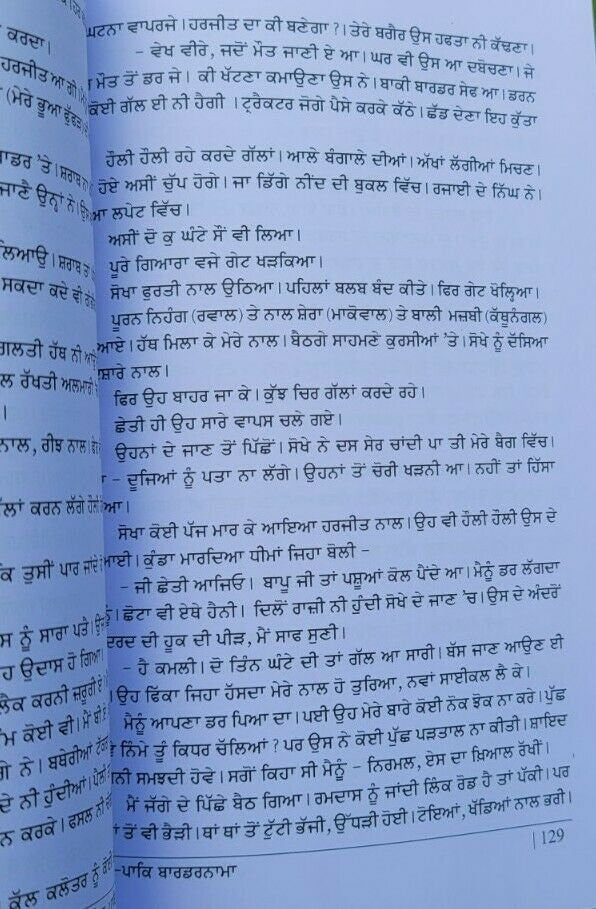 ਕਰਦਾ।
ਹਰਜੀਤ ਆ ਗੀ।
(ਮੇਰੇ ਭੂਆ ਫੁੱਫੜ)
ਬਾਰਡਰ ’ਤੇ। ਸ਼ਰਾਬ
ਜਾਣੈ ਉਨ੍ਹਾਂ ਨੇ।
ਲਿਆਓ। ਸ਼ਰਾਬ ਤਾਂ
ਸਕਦਾ ਕਦੇ ਵੀ
ਗਲਤੀ ਹੱਥ ਨੀ ਆਏ
ਰੱਖਤੀ ਅਲਮਾਰੀ
ਨਾਲ, ਰੀਝ ਨਾਲ।
ਗੱਲਾਂ ਕਰਨ ਲੱਗੇ ਹੌਲੀ
ਕਿ ਤੁਸੀਂ ਪਾਰ ਜਾਂਦੇ
ਨੂੰ ਸਾਰਾ ਪਤੈ।
ਉਦਾਸ ਹੋ ਗਿਆ।
ਕਰਨੀ ਜ਼ਰੂਰੀ ਏ
ਕੋਈ ਵੀ। ਮੈਂ ਬੀ
ਨੇ। ਬਥੇਰੀਆਂ
ਦੇ ਨੀ ਹੁੰਦੀਆਂ। ਪੈਲੀ
ਕਰਕੇ। ਫਸਲ ਨੀ
ਕੱਲ ਕਲੋਤਰ ਨੂੰ ਕੋਈ
ਘਟਨਾ ਵਾਪਰਜੇ। ਹਰਜੀਤ ਦਾ ਕੀ ਬਣੇਗਾ ?। ਤੇਰੇ ਬਗੈਰ ਉਸ ਹਫਤਾ ਨੀ ਕੱਢਣਾ।
– ਵੇਖ ਵੀਰੇ, ਜਦੋਂ ਮੌਤ ਜਾਣੀ ਏ ਆ। ਘਰ ਵੀ ਉਸ ਆ ਦਬੋਚਣਾ। ਜੇ
ਮੌਤ ਤੋਂ ਡਰ ਜੇ। ਕੀ ਖੱਟਣਾ ਕਮਾਉਣਾ ਉਸ ਨੇ। ਬਾਕੀ ਬਾਰਡਰ ਸੇਫ ਆ। ਡਰਨ
ਕੋਈ ਗੱਲ ਈ ਨੀ ਹੈਗੀ । ਟ੍ਰੈਕਟਰ ਜੋਗੇ ਪੈਸੇ ਕਰਕੇ ਕੱਠੇ। ਛੱਡ ਦੇਣਾ ਇਹ ਕੁੱਤਾ
ਹੌਲੀ ਹੌਲੀ ਰਹੇ ਕਰਦੇ ਗੱਲਾਂ। ਆਲੇ ਬੰਗਾਲੇ ਦੀਆਂ। ਅੱਖਾਂ ਲੱਗੀਆਂ ਮਿਚਣ।
ਹੋਏ ਅਸੀਂ ਚੁੱਪ ਹੋਗੇ। ਜਾ ਡਿੱਗੇ ਨੀਂਦ ਦੀ ਬੁਕਲ ਵਿੱਚ। ਰਜਾਈ ਦੇ ਨਿੱਘ ਨੇ।
ਲਪੇਟ ਵਿੱਚ।
ਅਸੀਂ ਦੋ ਕੁ ਘੰਟੇ ਸੌਂ ਵੀ ਲਿਆ।
ਪੂਰੇ ਗਿਆਰਾ ਵਜੇ ਗੇਟ ਖੜਕਿਆ।
ਸੋਖਾ ਫੁਰਤੀ ਨਾਲ ਉਠਿਆ। ਪਹਿਲਾਂ ਬਲਬ ਬੰਦ ਕੀਤੇ। ਫਿਰ ਗੇਟ ਖੋਲ੍ਹਿਆ।
ਪੂਰਨ ਨਿਹੰਗ (ਰਵਾਲ) ਤੇ ਨਾਲ ਸ਼ੇਰਾ (ਮਾਕੋਵਾਲ) ਤੇ ਬਾਲੀ ਮਜ਼ਬੀ (ਕੱਥੂਨੰਗਲ)
ਆਏ। ਹੱਥ ਮਿਲਾ ਕੇ ਮੇਰੇ ਨਾਲ। ਬੈਠਗੇ ਸਾਹਮਣੇ ਕੁਰਸੀਆਂ ’ਤੇ। ਸੋਖੇ ਨੂੰ ਦੱਸਿਆ
ਸ਼ਾਰੇ ਨਾਲ।
ਫਿਰ ਉਹ ਬਾਹਰ ਜਾ ਕੇ। ਕੁੱਝ ਚਿਰ ਗੱਲਾਂ ਕਰਦੇ ਰਹੇ।
ਛੇਤੀ ਹੀ ਉਹ ਸਾਰੇ ਵਾਪਸ ਚਲੇ ਗਏ।
ਉਹਨਾਂ ਦੇ ਜਾਣ ਤੋਂ ਪਿੱਛੋਂ। ਸੋਖੇ ਨੇ ਦਸ ਸੇਰ ਚਾਂਦੀ ਪਾ ਤੀ ਮੇਰੇ ਬੈਗ ਵਿੱਚ।
– ਦੂਜਿਆਂ ਨੂੰ ਪਤਾ ਨਾ ਲੱਗੇ। ਉਹਨਾਂ ਤੋਂ ਚੋਰੀ ਖੜਨੀ ਆ। ਨਹੀਂ ਤਾਂ ਹਿੱਸਾ
ਆ।
ਸੋਖਾ ਕੋਈ ਪੱਜ ਮਾਰ ਕੇ ਆਇਆ ਹਰਜੀਤ ਨਾਲ। ਉਹ ਵੀ ਹੌਲੀ ਹੌਲੀ ਉਸ ਦੇ
ਆਈ। ਕੁੰਡਾ ਮਾਰਦਿਆ ਧੀਮਾਂ ਜਿਹਾ ਬੋਲੀ –
– ਜੀ ਛੇਤੀ ਆਜਿਓ। ਬਾਪੂ ਜੀ ਤਾਂ ਪਸ਼ੂਆਂ ਕੋਲ ਪੈਂਦੇ ਆ। ਮੈਨੂੰ ਡਰ ਲੱਗਦਾ
ਛੋਟਾ ਵੀ ਏਥੇ ਹੈਨੀ। ਦਿਲੋਂ ਰਾਜ਼ੀ ਨੀ ਹੁੰਦੀ ਸੋਖੇ ਦੇ ਜਾਣ ’ਚ। ਉਸ ਦੇ ਅੰਦਰੋਂ
ਦਰਦ ਦੀ ਹੂਕ ਦੀ ਪੀੜ, ਮੈਂ ਸਾਫ ਸੁਣੀ।
– ਹੈ ਕਮਲੀ। ਦੋ ਤਿੰਨ ਘੰਟੇ ਦੀ ਤਾਂ ਗੱਲ ਆ ਸਾਰੀ। ਬੱਸ ਜਾਣ ਆਉਣ ਈ
ਉਹ ਫਿੱਕਾ ਜਿਹਾ ਹੱਸਦਾ ਮੇਰੇ ਨਾਲ ਹੋ ਤੁਰਿਆ, ਨਵਾਂ ਸਾਈਕਲ ਲੈ ਕੇ।
ਮੈਨੂੰ ਆਪਣਾ ਡਰ ਪਿਆ ਦਾ। ਪਈ ਉਹ ਮੇਰੇ ਬਾਰੇ ਕੋਈ ਨੋਕ ਝੋਕ ਨਾ ਕਰੇ। ਪੁੱਛ
ਨਿੰਮੇ ਤੂੰ ਕਿਧਰ ਚੱਲਿਆਂ ? ਪਰ ਉਸ ਨੇ ਕੋਈ ਪੁੱਛ ਪੜਤਾਲ ਨਾ ਕੀਤੀ। ਸ਼ਾਇਦ
ਨੀ ਸਮਝਦੀ ਹੋਵੇ। ਸਗੋਂ ਕਿਹਾ ਸੀ ਮੈਨੂੰ – ਨਿਰਮਲ, ਏਸ ਦਾ ਖ਼ਿਆਲ ਰੱਖੀਂ।
ਮੈਂ ਜੱਗੇ ਦੇ ਪਿੱਛੇ ਬੈਠ ਗਿਆ। ਰਮਦਾਸ ਨੂੰ ਜਾਂਦੀ ਲਿੰਕ ਰੋਡ ਹੈ ਤਾਂ ਪੱਕੀ। ਪਰ
ਤੋਂ ਵੀ ਭੈੜੀ। ਥਾਂ ਥਾਂ ਤੋਂ ਟੁੱਟੀ ਭੱਜੀ, ਉੱਧੜੀ ਹੋਈ। ਟੋਇਆਂ, ਖੱਡਿਆਂ ਨਾਲ ਭਰੀ।
–ਪਾਕਿ ਬਾਰਡਰਨਾਮਾ
| 129